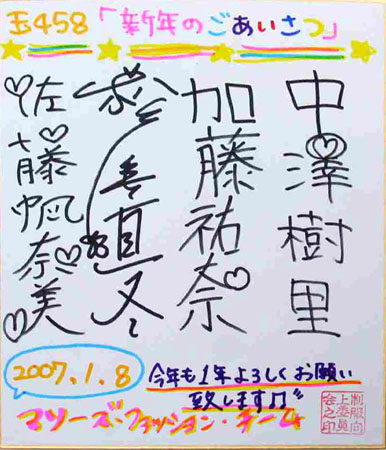 玉458「新年のごあいさつ」
中澤樹里
加藤祐奈
佐藤帆奈美
2007.1.8
今年も1年よろしくお願い
致します♫
マソーズ・ファッション・チーム
制服向
上委員
会之印